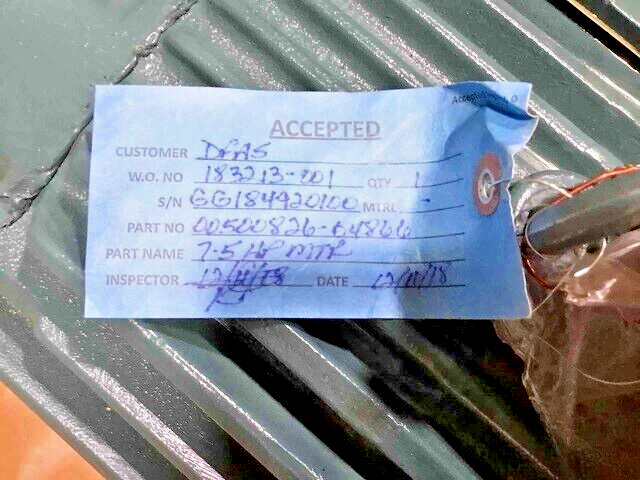 ACCEPTED
CUSTOMER DFAS
W.O. NO 183213-001 QTY 1
S/N GG184920100 MTRL -
PART NO 00500826-64866
PART NAME 7.5 HP MTR
INSPECTOR 12/11/18 DATE 12/11/18